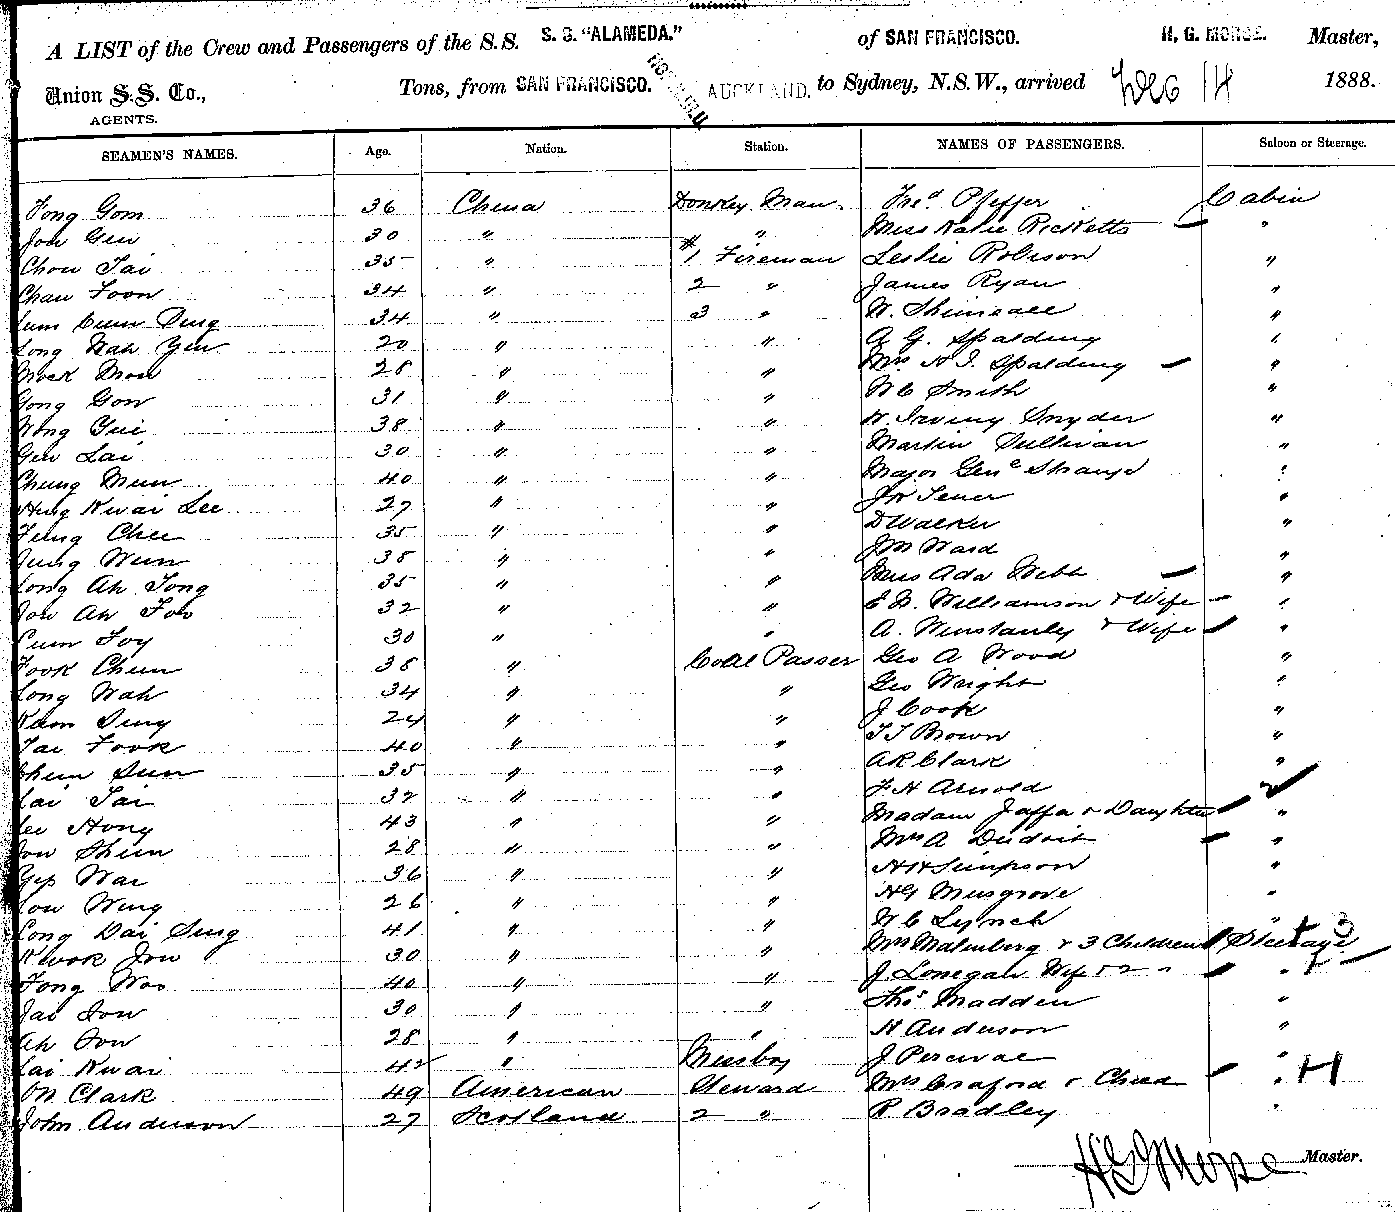 A LIST of the Crew and Passengers of the S.S. S. S. "ALAMEDA." of SAN FRANCISCO. H. G. MORSE. Master,
Union S.S. Co., Tons, from SAN FRANCISCO. HONOLULU AUCKLAND. to Sydney, N.S.W., arrived Dec 14 1888.
AGENTS.
SEAMEN'S NAMES. Age. Nation. Station. NAMES OF PASSENGERS. Saloon or Steerage.
Fong Gom 36 China Donkey Man Fred Pfeffer Cabin
Jon Gen 30 " " Miss Katie Ricketts "
Chow Tai 35 " #1 Fireman Leslie Robison "
Chau Foon 34 " 2 " James Ryan "
Lum Cum Sing 34 " 3 " W. "
Long Wah Yen 20 " " A G. Spalding "
Mock Mow 28 " " Mrs H I. Spalding "
Gong Gow 31 " " W C Smith "
Wong Yui 38 " " W. Irving Snyder "
Gen Lai 30 " " Martin Sullivan "
Chung Mun 40 " " Major Genl Strange "
Hing Kwai Lee 27 " " J K Tener "
Fung Chee 35 " " D Walker "
Jung Wun 38 " " J M Ward "
Long Ah Tong 35 " " Miss Ada Webb "
Jou Ah Foo 32 " " E N. Williamson & Wife "
Cum Foy 30 " " A. Winstanley & Wife "
Fook Chun 38 " Coal Passer Geo A Wood "
Long Wah 34 " " Geo Wright "
Kam Sing 24 " " J Cook "
Tai Fook 40 " " T J Brown "
Chun Sun 35 " " A R Clark "
Lai Tai 32 " " F H Arnold "
Lee Hong 43 " " Madam Jaffa & Daughter "
Jow Shun 28 " " Mrs A Dudoit "
Yep Wai 36 " " H H Simpson "
Low Wing 26 " " H G Musgrove "
Long Dai Sing 41 " " W C Lynch "
Kwok Jow 30 " " Mrs Malmberg & 3 Children Steerage 3
Fong Woo 40 " " J Lonegan Wife & 2 " "
Jai Sow 30 " " Thos Madden "
Ah Sow 28 " " H Anderson "
Lai Kwai 42 " Messboy J. Percival "
M Clark 49 American Steward Mrs Craford & Child "
John Anderson 27 Scotland 2 " R Bradley "
H G Morse Master.